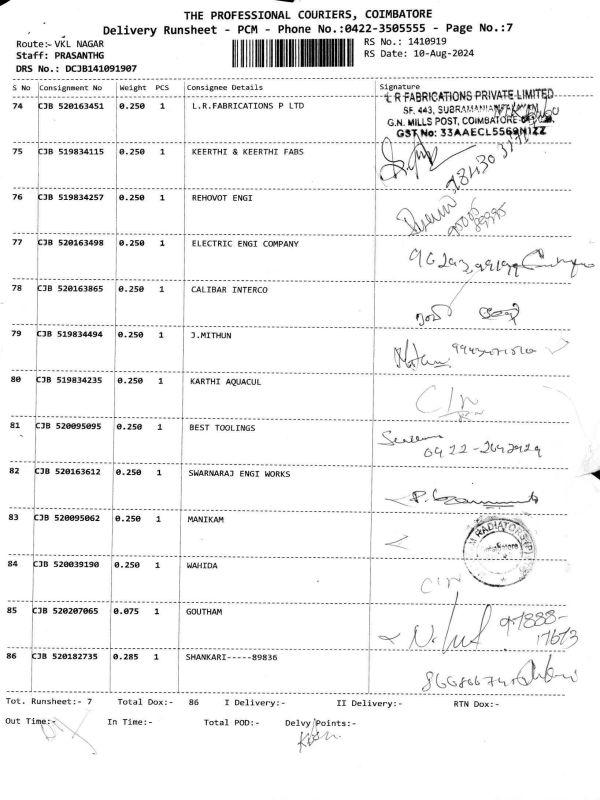 THE PROFESSIONAL COURIERS, COIMBATORE
Delivery Runsheet - PCM - Phone No.:0422-3505555 - Page No.:7
Route:- VKL NAGAR
RS No.: 1410919
Staff: PRASANTHG
RS Date: 10-Aug-2024
DRS No.: DCJB141091907
S No Consignment No Weight PCS Consignee Details Signature
74 CJB 520163451 0.250 1 L.R.FABRICATIONS P LTD
L R FABRICATIONS PRIVATE LIMITED
SF. 443, SUBRAMANIA
G.N. MILLS POST, COIMBATORE
GST No: 33AAECL5569N1ZZ
75 CJB 519834115 0.250 1 KEERTHI & KEERTHI FABS
76 CJB 519834257 0.250 1 REHOVOT ENGI
77 CJB 520163498 0.250 1 ELECTRIC ENGI COMPANY
78 CJB 520163865 0.250 1 CALIBAR INTERCO
79 CJB 519834494 0.250 1 J.MITHUN
80 CJB 519834235 0.250 1 KARTHI AQUACUL
81 CJB 520095095 0.250 1 BEST TOOLINGS
82 CJB 520163612 0.250 1 SWARNARAJ ENGI WORKS
83 CJB 520095062 0.250 1 MANIKAM
84 CJB 520039190 0.250 1 WAHIDA
85 CJB 520207065 0.075 1 GOUTHAM
97888-
17673
86 CJB 520182735 0.285 1 SHANKARI-----89836
Tot. Runsheet:- 7 Total Dox:- 86 I Delivery:- II Delivery:- RTN Dox:-
Out Time:- In Time:- Total POD:- Delvy Points:-